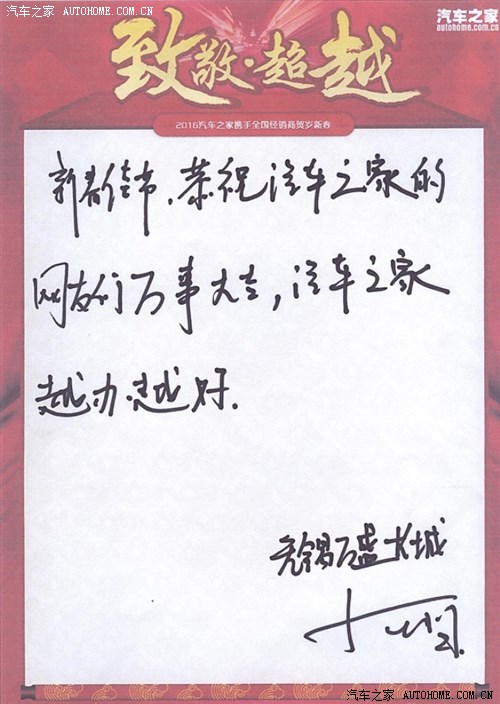 汽车之家 AUTOHOME.COM.CN
汽车之家
www.autohome.com.cn
致敬·超越
2016汽车之家携手全国经销商贺岁新春
新春佳节,恭祝汽车之家的
网友们万事大吉,汽车之家
越办越好.
无锡万盛长城
汽车之家 AUTOHOME.COM.CN